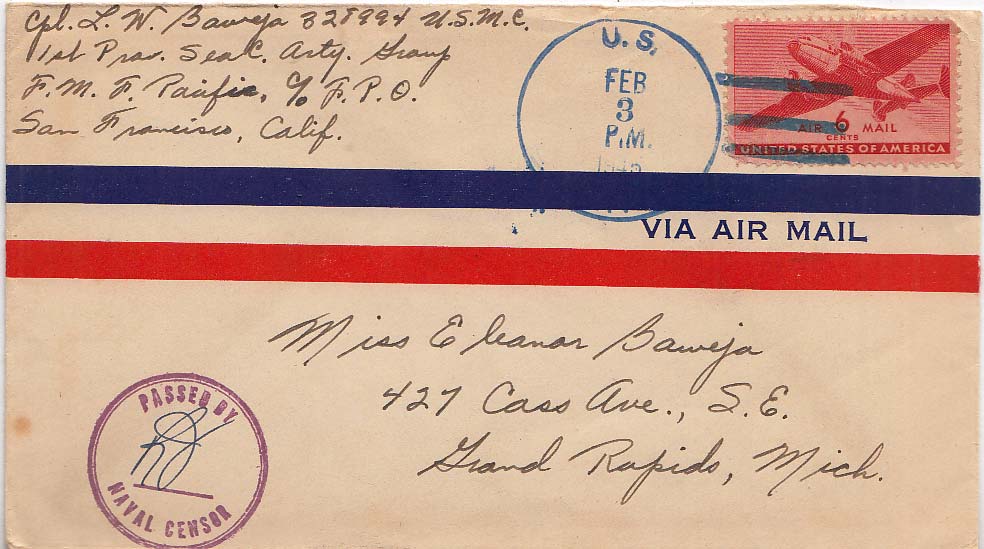 Cpl. L. W. Baweja 328994 U.S.M.C.
1st Prov. SeaC. Arty. Group
F. M. F. Pacific, c/o F. P. O.
San Francisco, Calif.
U. S.
FEB
3
P.M.
1945
AIR 6 MAIL
CENTS
UNITED STATES OF AMERICA
VIA AIR MAIL
Miss Eleanor Baweja
427 Cass Ave., S.E.
Grand Rapids, Mich.
PASSED BY
NAVAL CENSOR